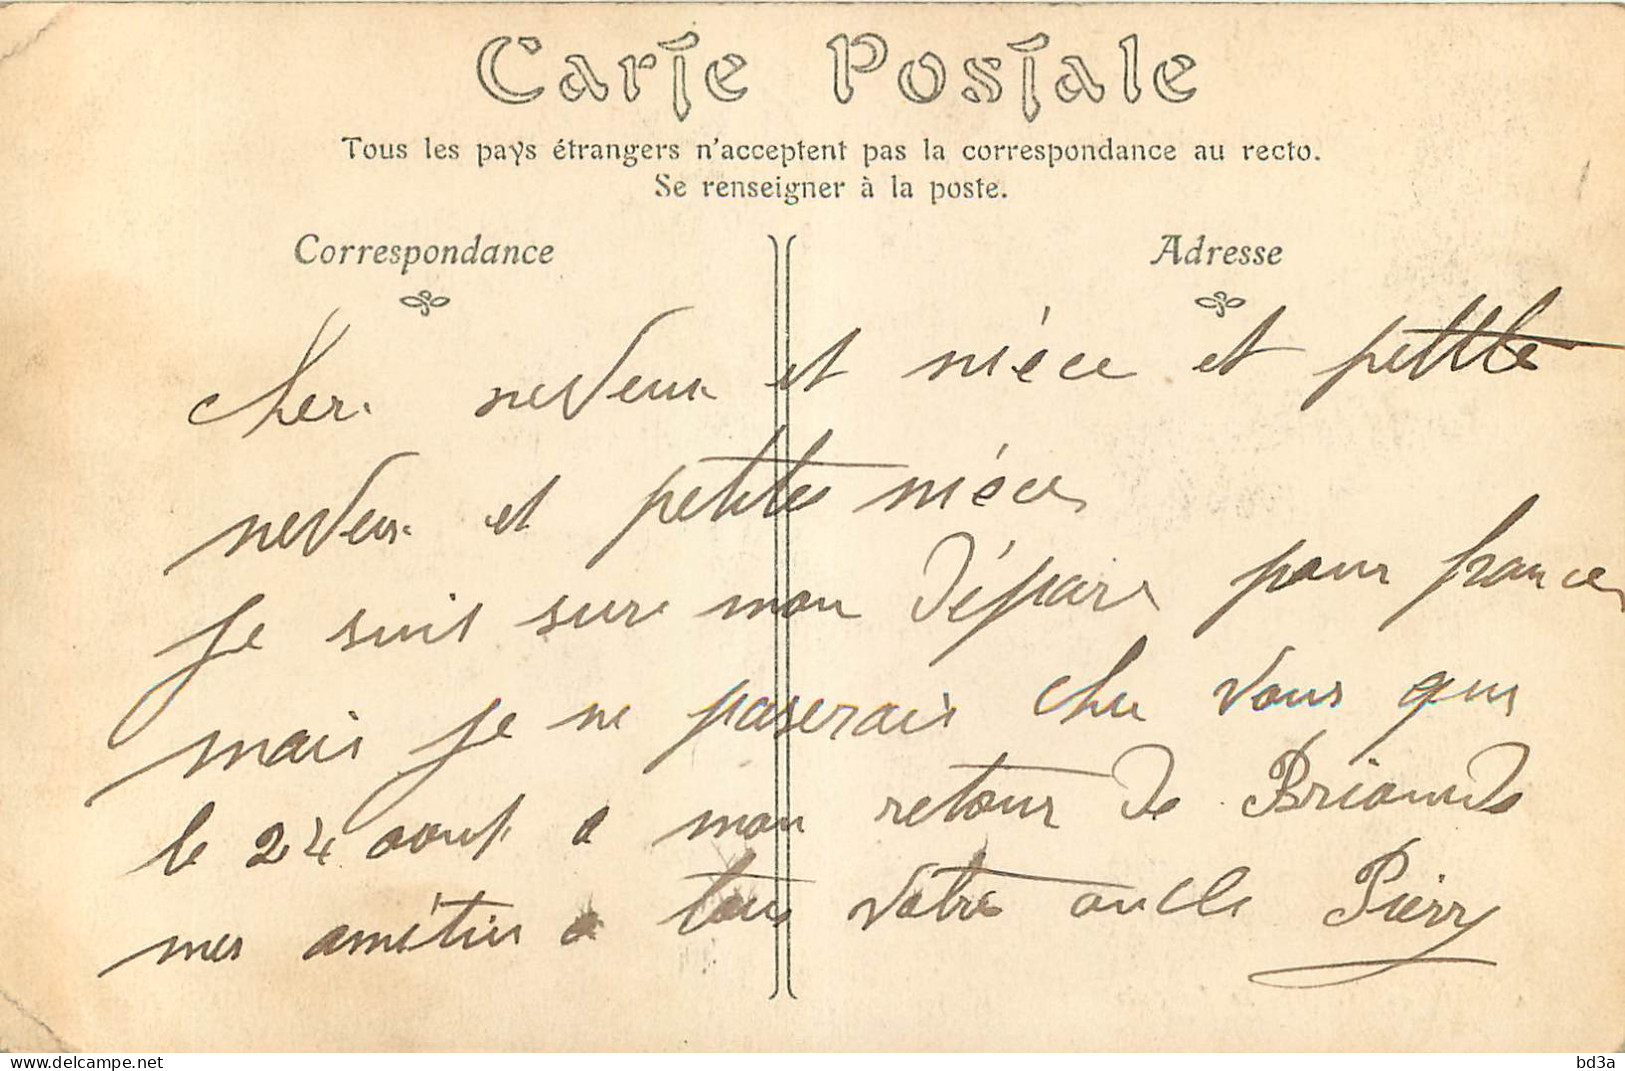 Carte Postale
Tous les pays étrangers n'acceptent pas la correspondance au recto.
Se renseigner à la poste.
Correspondance Adresse
cher neveux et niéce et petite
neveux et petites niéces
je suis sure mon départ pour france
mais je ne paserais chez vous que
le 24 aout a mon retour de
mes amitiés a tous votre oncle Pierry
www.delcampe.net bd3a